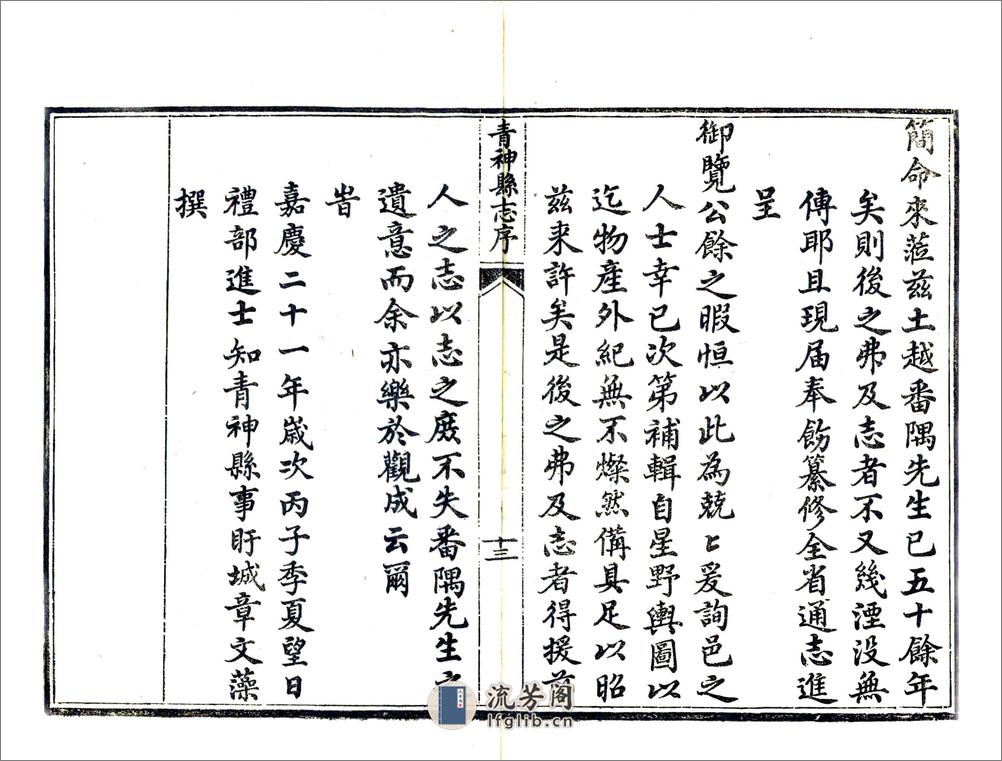 簡命來蒞茲土越番隅先生已五十餘年
矣則後之弗及志者不又幾湮没無
傳耶且現届奉飭纂修全省通志進
呈
御覽公餘之暇恒以此為兢〻爰詢邑之
人士幸已次第補輯自星野輿圖以
迄物産外紀無不燦然備具足以昭
茲来許矣是後之弗及志者得援前
青神縣志序
十三
人之志以志之庶不失番隅先生之
遺意而余亦樂於觀成云爾
旹
嘉慶二十一年歲次丙子季夏望日
禮部進士知青神縣事盱城章文藻
撰
流芳阁
lfglib.cn